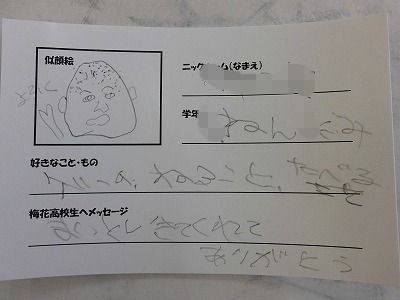 似顔絵
ニック ーム(なまえ)
よろしく
学年
ねん くみ
好きなこと・もの
ねること、たべる
こと
梅花高校生へメッセージ
きてくれて
ありがとう